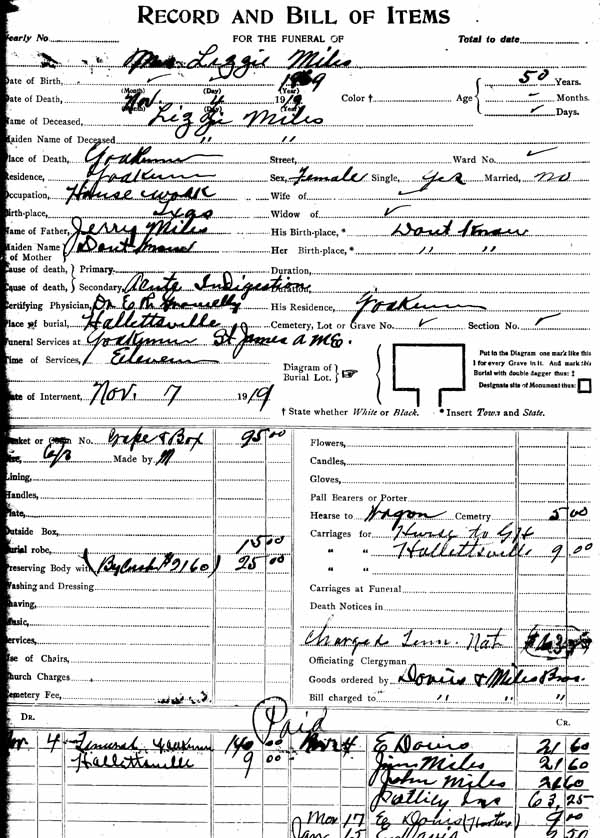 RECORD AND BILL OF ITEMS
FOR THE FUNERAL OF
Yearly No. Total to date
Mrs Lizzie Miles
Date of Birth, (Month) (Day) (Year)
Date of Death, Nov. 4 1919 Color † Age 50 Years. – Months. ✓ Days.
(Month) (Day) (Year)
Name of Deceased, Lizzie Miles
Maiden Name of Deceased " "
Place of Death, Yoakum Street, Ward No. ✓
Residence, Yoakum Sex, Female Single, Yes Married, no
Occupation, House work Wife of ✓
Birth-place, Texas Widow of ✓
Name of Father, Jerry Miles His Birth-place,* Dont Know
Maiden Name of Mother Dont Know Her Birth-place,* " "
Cause of death, Primary. Duration,
Cause of death, Secondary, Acute Indigestion Duration,
Certifying Physician, Dr His Residence, Yoakum
Place of burial, Hallettsville Cemetery, Lot or Grave No. ✓ Section No. ✓
Funeral Services at Yoakum St James A M E.
Time of Services, Eleven
Diagram of Burial Lot. ☞
Put in the Diagram one mark like this
I for every Grave in it. And mark this
Burial with double dagger thus: ‡
Designate site of Monument thus:
Date of Interment, Nov. 7 1919
† State whether White or Black. * Insert Town and State.
Casket or Coffin No. Crape & Box 95 00
Size, 6/3 Made by M
Lining,
Handles,
Plate,
Outside Box,
Burial robe, 15 00
Preserving Body with (By Cash #2160) 25 00
Washing and Dressing
Shaving,
Music,
Services,
Use of Chairs,
Church Charges
Cemetery Fee,
Flowers,
Candles,
Gloves,
Pall Bearers or Porter
Hearse to Wagon Cemetry 5 00
Carriages for Hurse to
" " Hallettsville 9 00
" "
Carriages at Funeral
Death Notices in
Charged Nat
Officiating Clergyman
Goods ordered by & Miles Bros.
Bill charged to " " "
DR. Paid CR.
Nov 4 Funeral Yoakum 140 00
Hallettsville 9 00
Nov 4 E 21 60
Jim Miles 21 60
John Miles 21 60
63 25
Nov 17 9 00
Jan 15